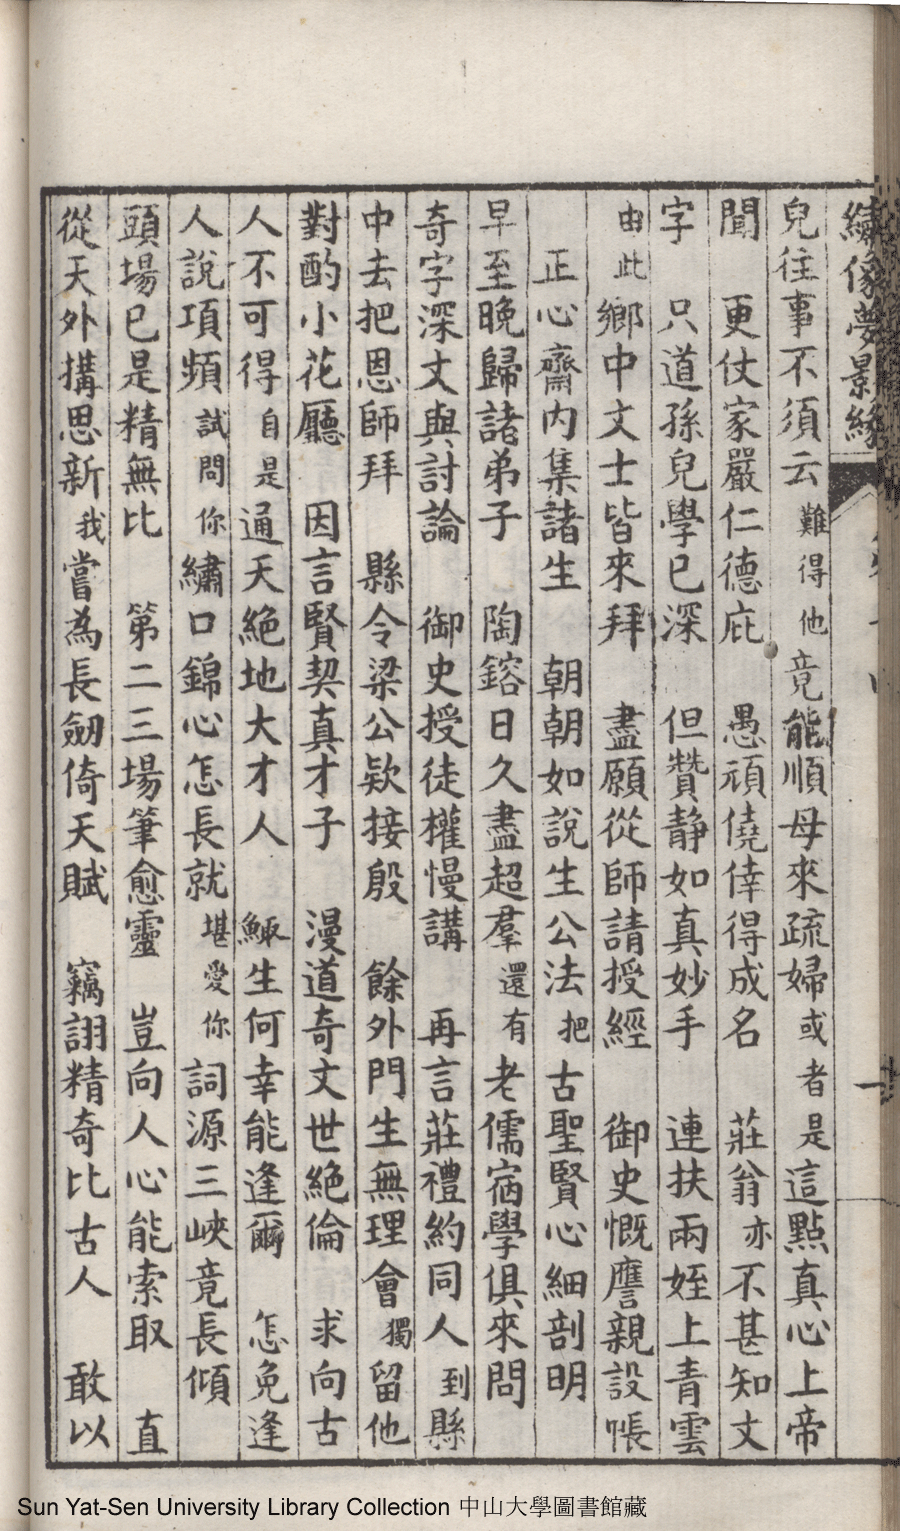 繡像夢景緣
兒往事不須云難得他竟能順母來疏婦或者是這點真心上帝
聞　更仗家嚴仁德庇　愚頑僥倖得成名　莊翁亦不甚知文
字　只道孫兒學已深　但贊靜如真妙手　連扶兩姪上青雲
由此鄉中文士皆來拜　盡願從師請授經　御史慨譍親設帳
正心齋內集諸生　朝朝如說生公法把古聖賢心細剖明
早至晚歸諸弟子　陶鎔日久盡超羣還有老儒宿學俱來問
奇字深文與討論　御史授徒權慢講　再言莊禮約同人到縣
中去把恩師拜　縣令梁公欵接殷　餘外門生無理會獨留他
對酌小花廳　因言賢契真才子　漫道奇文世絕倫　求向古
人不可得自是通天絕地大才人　鯫生何幸能逢爾　怎免逢
人說項頻試問你繡口錦心怎長就堪愛你詞源三峽竟長傾
頭場已是精無比　第二三場筆愈靈　豈向人心能索取　直
從天外搆思新我嘗為長劒倚天賦　竊詡精奇比古人　敢以
Sun Yat-Sen University Library Collection 中山大學圖書館藏